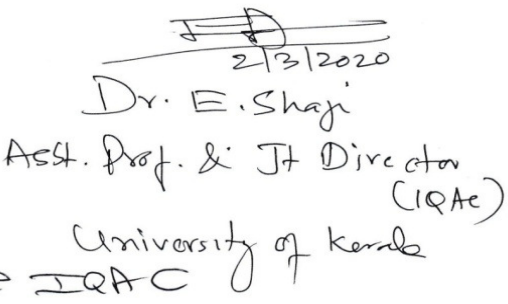 2/3/2020
Dr. E. Shaji
Asst. Prof. & Jt Director
(IQAC)
University of Kerala
IQAC